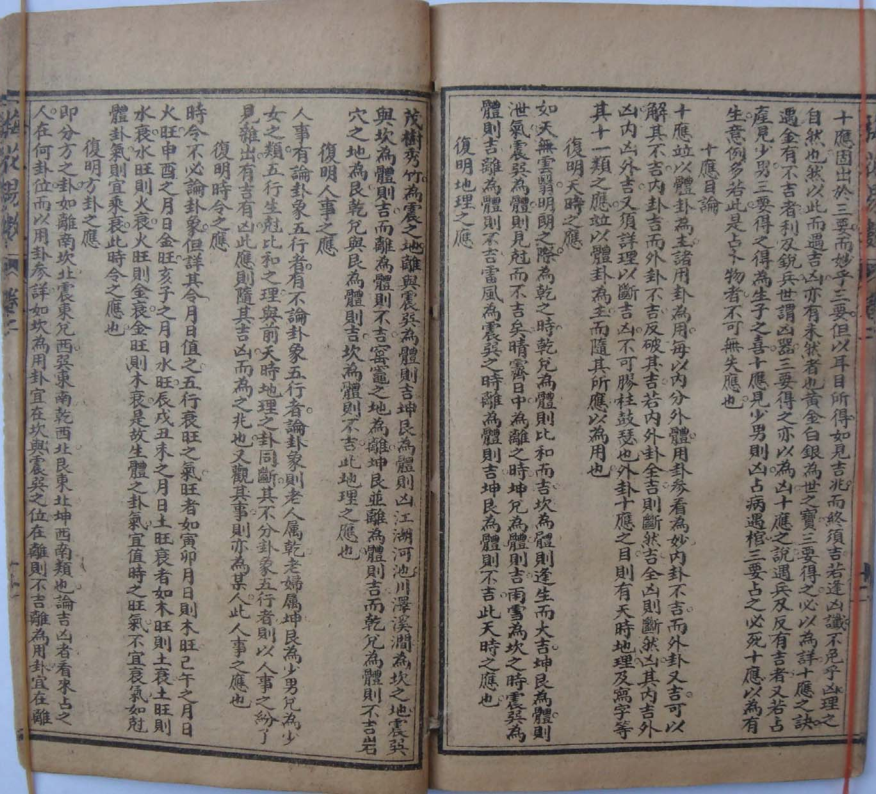 十應固出於三要而妙乎三要但以耳目所得如見吉兆而終須吉若逢凶讖不免乎凶理之
自然也然以此而遇吉凶亦有未然者也黃金白銀為世之寶三要得之必以為詳十應之訣
遇金有不吉者利及銳兵世謂凶器三要得之亦以為凶十應之說遇兵及反有吉者又若占
產見少男三要得之得為生子之喜十應見少男則凶占病遇棺三要占之必死十應以為有
生意例多若此是占卜物者不可無失應也
十應目論
十應竝以體卦為主諸用卦為用每以內分外體用卦參看為妙內卦不吉而外卦又吉可以
解其不吉內卦吉而外卦不吉反破其吉若內外卦全吉則斷然吉全凶則斷然凶其內吉外
凶內凶外吉又須詳理以斷吉凶不可膠柱鼓瑟也外卦十應之目則有天時地理及寫字等
其十一類之應竝以體卦為主而隨其所應以為用也
復明天時之應
如天無雲翳明朗之際為乾之時乾兌為體則比和而吉坎為體則逢生而大吉坤艮為體則
泄氣震巽為體則見尅而不吉矣晴霽日中為離之時坤兌為體則吉雨雪為坎之時震巽為
體則吉離為體則不吉雷風為震巽之時離為體則吉坤艮為體則不吉此天時之應也
復明地理之應
茂樹秀竹為震之地離與震巽為體則吉坤艮為體則凶江湖河池川澤溪澗為坎之地震巽
與坎為體則吉而離為體則不吉窰竈之地為離坤艮並離為體則吉而乾兌為體則不吉岩
穴之地為艮乾兌與艮為體則吉坎為體則不吉此地理之應也
復明人事之應
人事有論卦象五行者有不論卦象五行者論卦象則老人屬乾老婦屬坤艮為少男兌為少
女之類五行生尅比和之理與前天時地理之卦同斷其不分卦象五行者則以人事之紛了
見雜出有吉有凶此應則隨其吉凶而為之兆也又觀其事則亦為某人此人事之應也
復明時令之應
時令不必論卦象但詳其令月日值之五行衰旺之氣旺者如寅卯月日則木旺巳午之月日
火旺申酉之月日金旺亥子之月日水旺辰戌丑未之月日土旺衰者如木旺則土衰土旺則
水衰水旺則火衰火旺則金衰金旺則木衰是故生體之卦氣宜值時之旺氣不宜衰氣如尅
體卦氣則宜乘衰此時令之應也
復明方卦之應
即分方之卦如離南坎北震東兌西巽東南乾西北艮東北坤西南類也論吉凶者看來占之
人在何卦位而以用卦參詳如坎為用卦宜在坎與震巽之位在離則不吉離為用卦宜在離